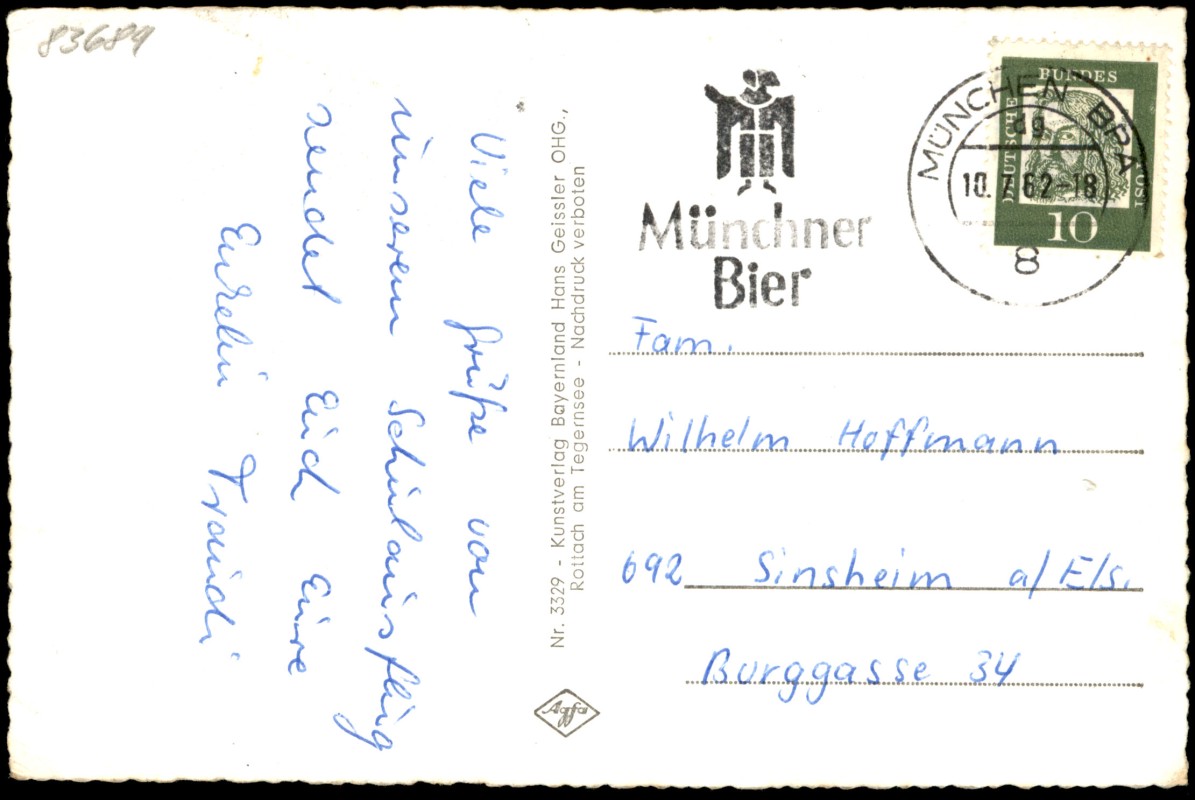 83689
Viele Grüße von
unserem Schulausflug
sendet Euch Eure
Enkelin Traudi
Nr. 3329 - Kunstverlag Bayernland Hans Geissler OHG.,
Rottach am Tegernsee - Nachdruck verboten
Agfa
Münchner
Bier
MÜNCHEN BPA
dg
10.7.62-18
8
DEUTSCHE BUNDESPOST
10
Fam.
Wilhelm Hoffmann
692 Sinsheim a/Els.
Burggasse 34